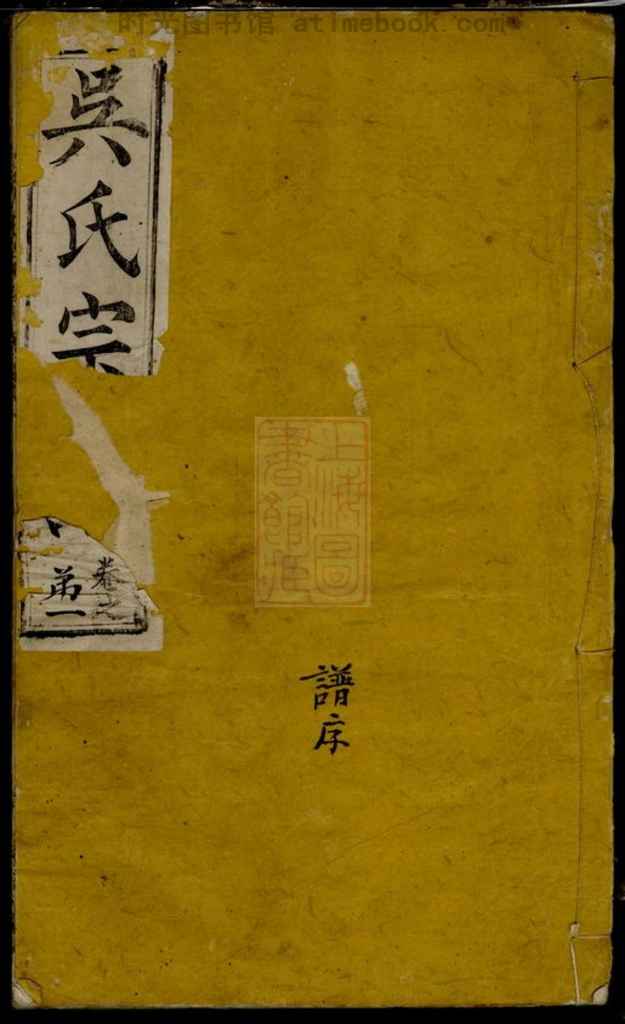 时光图书馆 atimebook.com
吳氏宗
卷之
第一
上海圖
書館藏
譜序